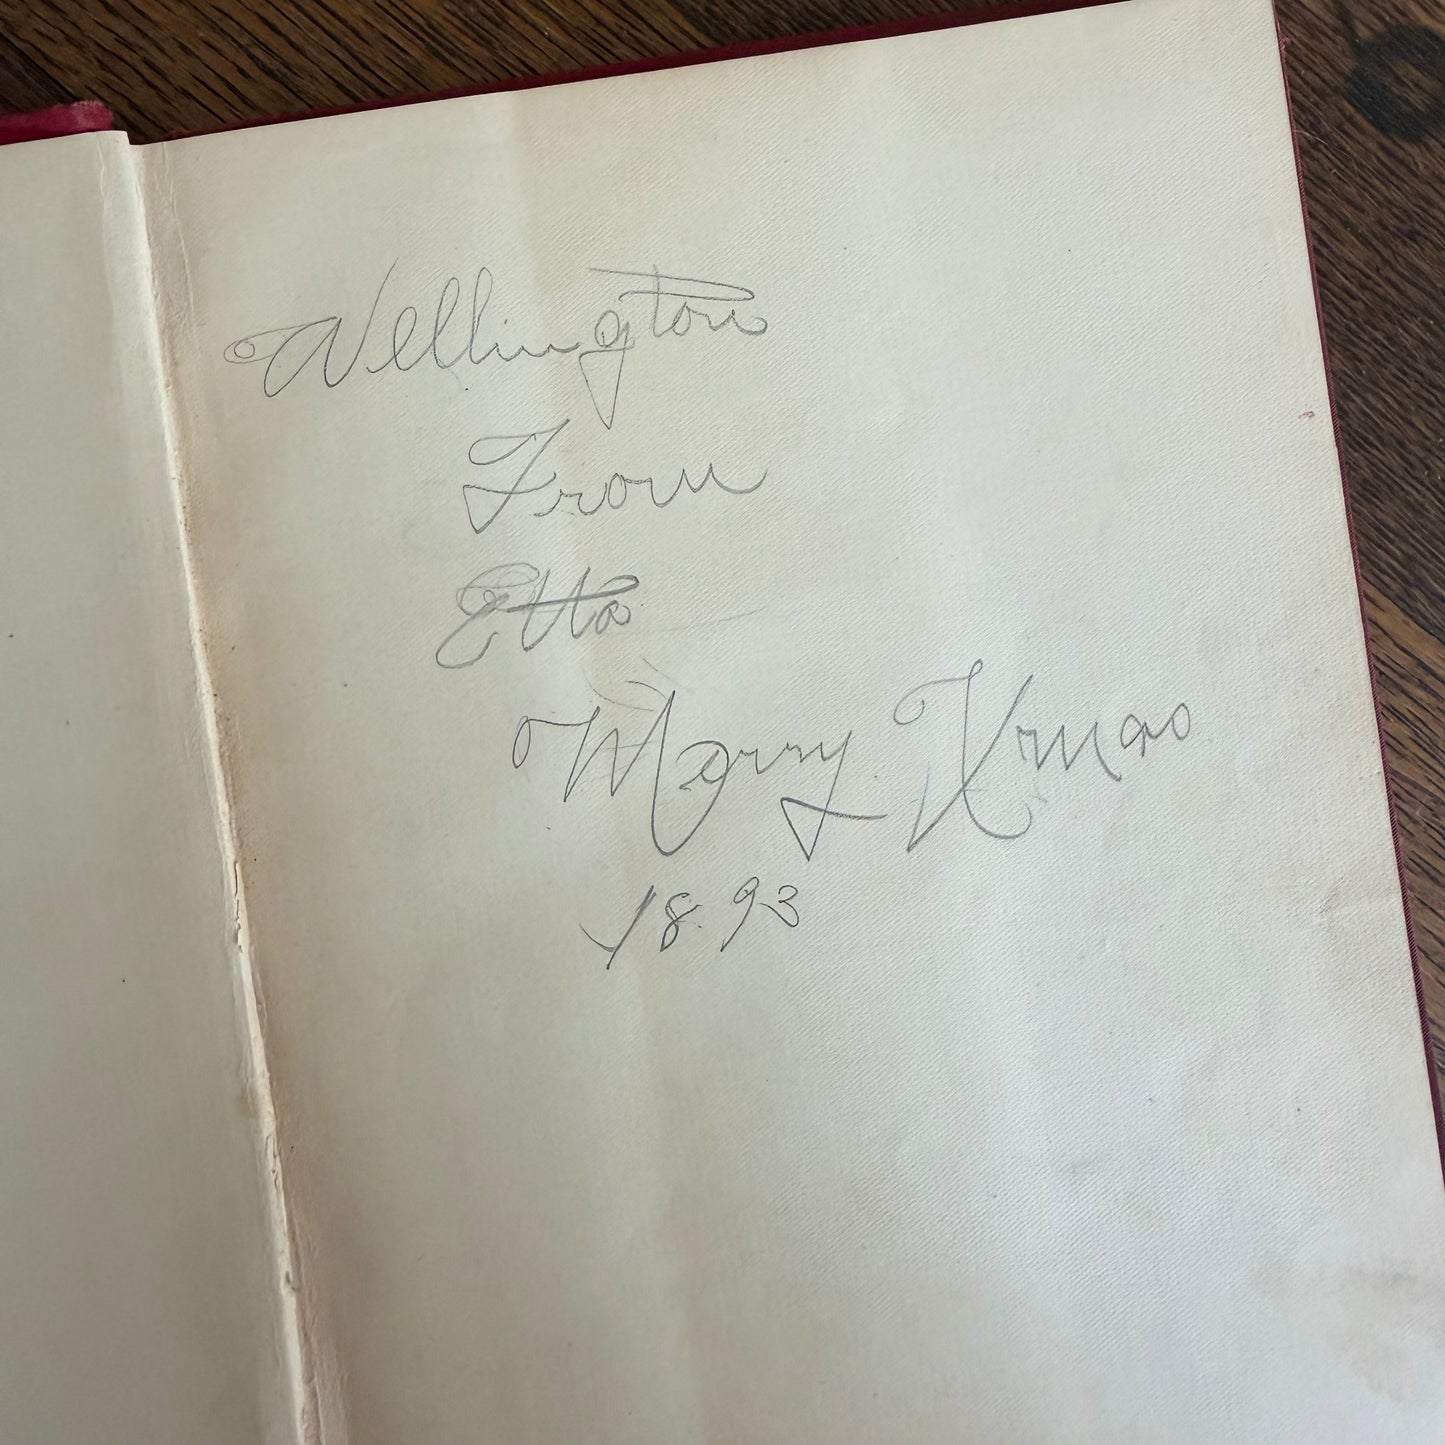 Wellington
From
Etta
Merry Xmas
1893